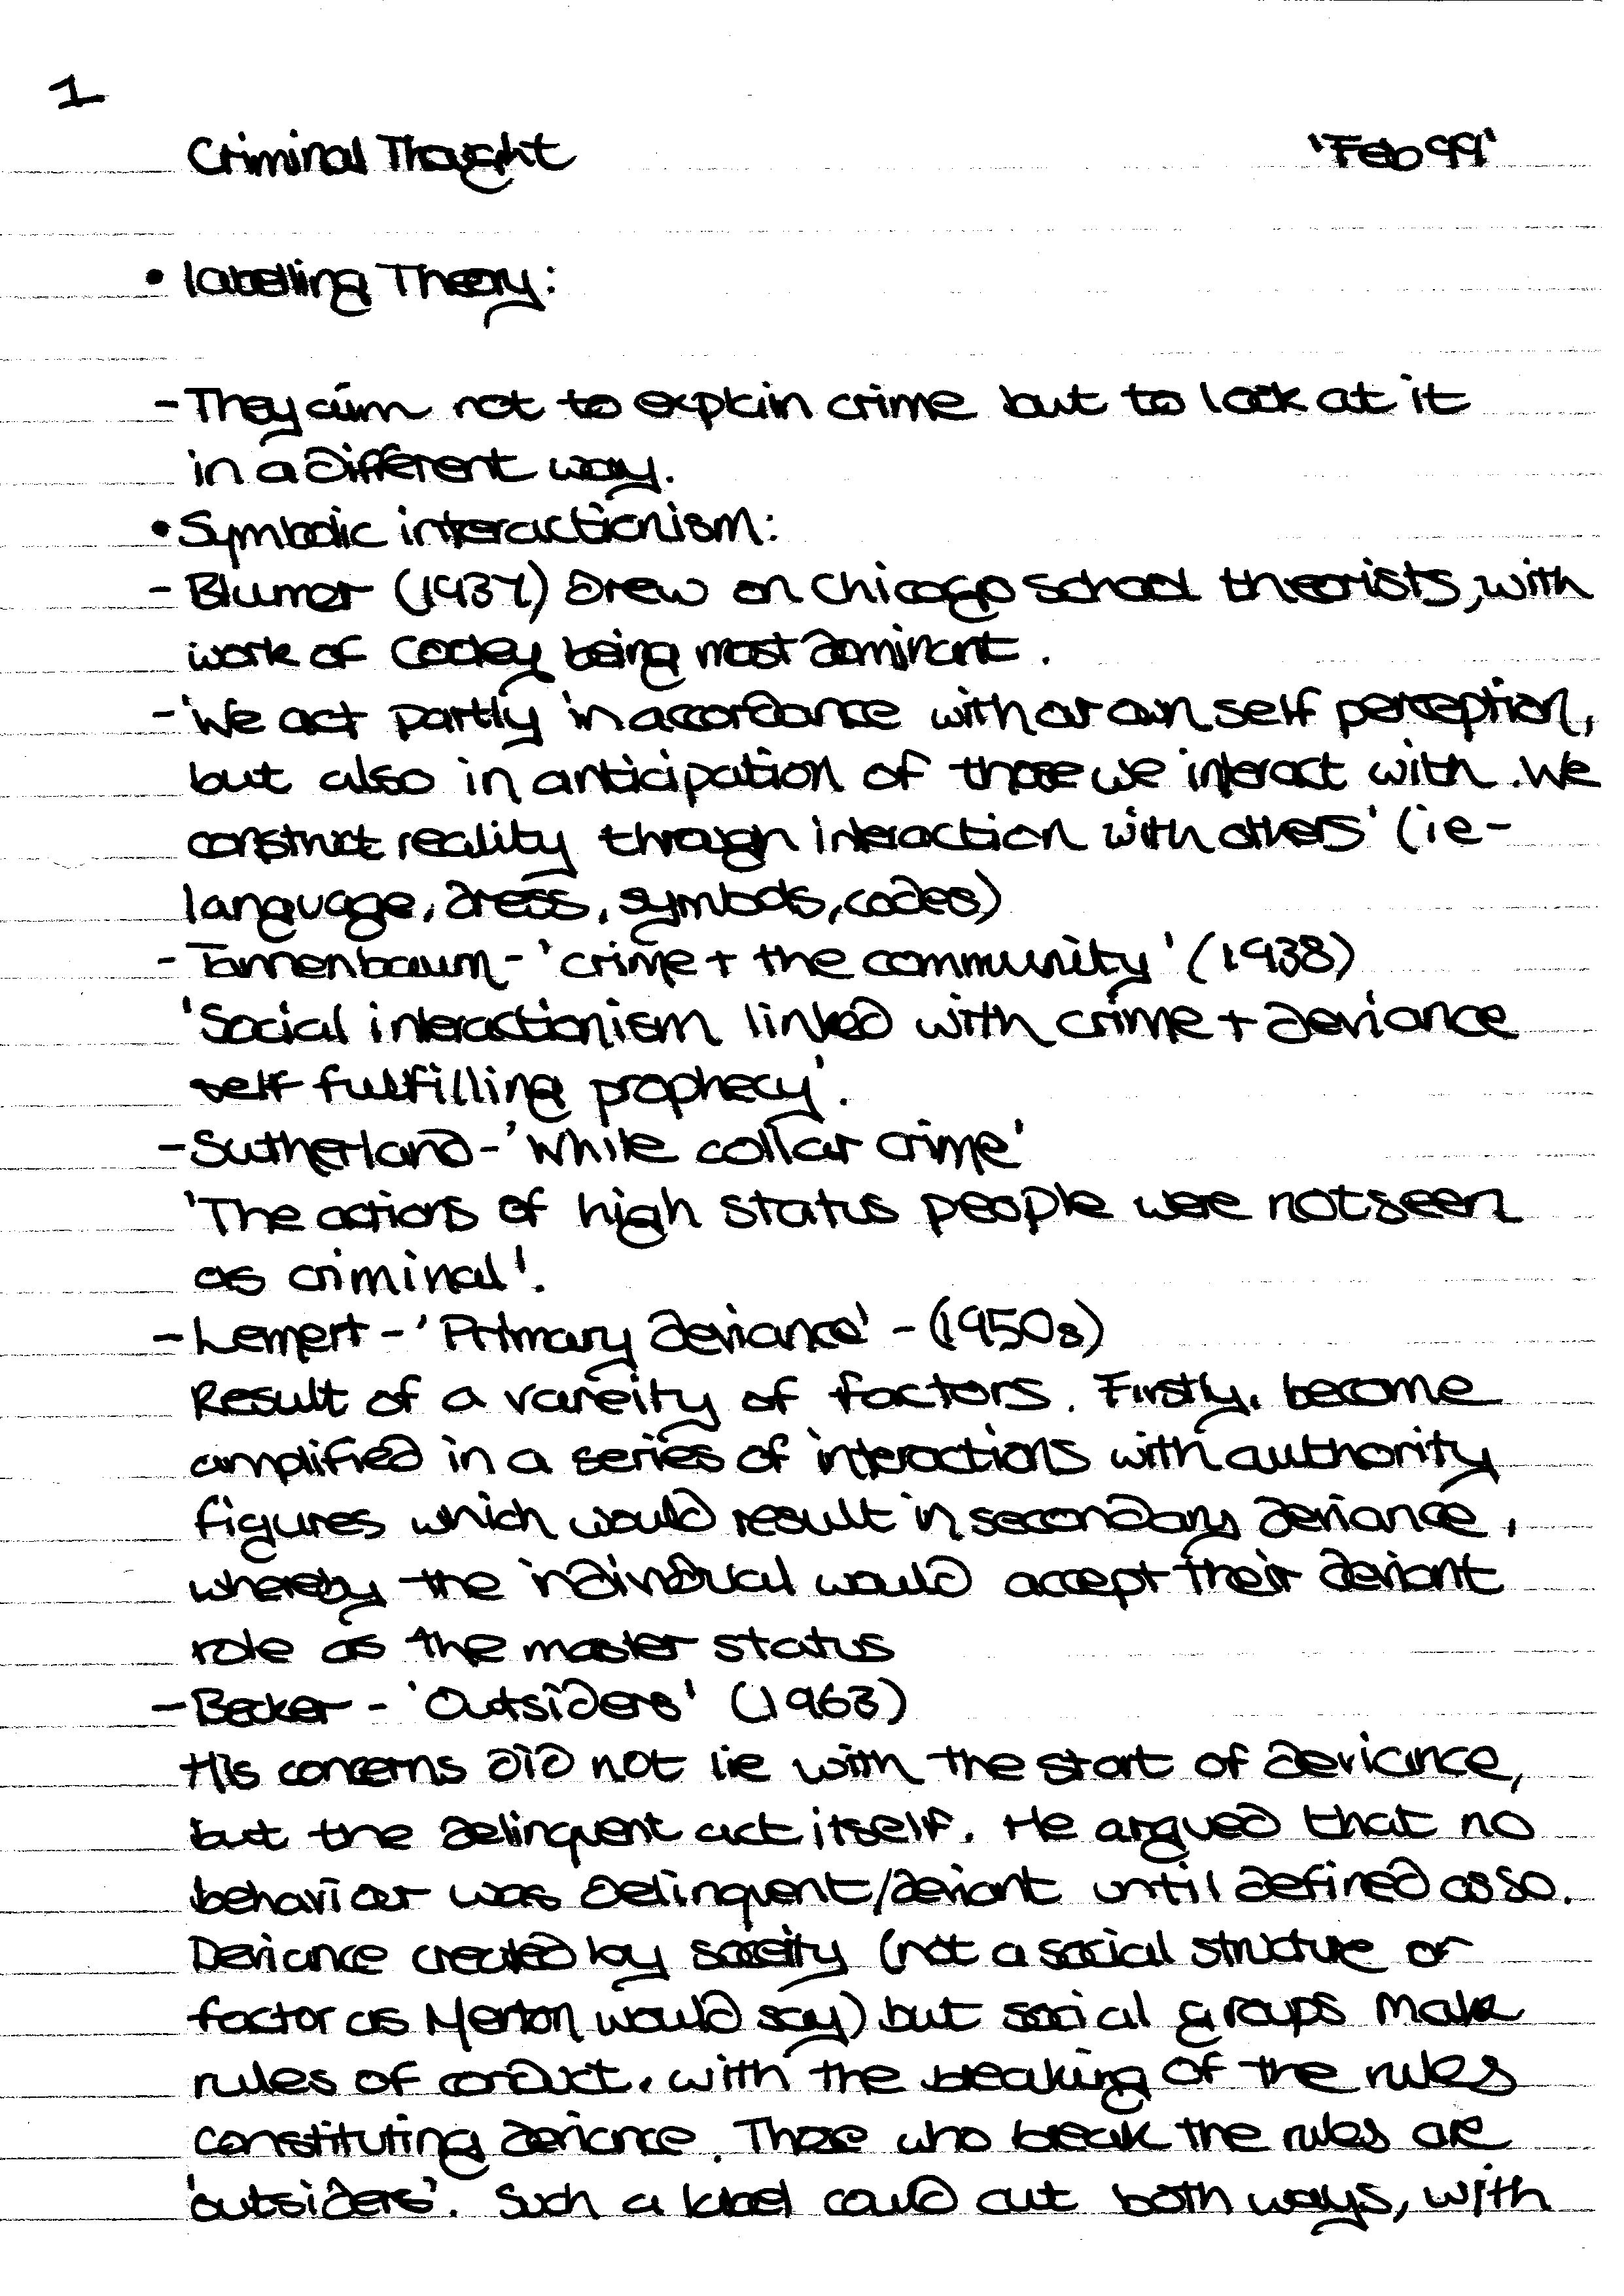 1
Criminal Thought 'Feb 99'
• labelling Theory:
- They aim not to explain crime but to look at it
in a different way.
• Symbolic interactionism:
- Blumer (1937) drew on Chicago School theorists, with
work of Cooley being most dominant.
- 'We act partly in accordance with our own self perception,
but also in anticipation of those we interact with. We
construct reality through interaction with others' (ie -
language, dress, symbols, codes)
- Tannenbaum - 'crime + the community' (1938)
'Social interactionism linked with crime + deviance
self fulfilling prophecy'.
- Sutherland - 'White collar crime'
'The actions of high status people were not seen
as criminal'.
- Lemert - 'Primary deviance' - (1950s)
Result of a vareity of factors. Firstly, become
amplified in a series of interactions with authority
figures which would result in secondary deviance,
whereby the individual would accept their deviant
role as the master status
- Becker - 'Outsiders' (1963)
His concerns did not lie with the start of deviance,
but the delinquent act itself. He argued that no
behaviour was delinquent/deviant until defined as so.
Deviance created by soceity (not a social structure or
factor as Merton would say) but social groups make
rules of conduct, with the breaking of the rules
constituting deviance. Those who break the rules are
'outsiders'. Such a label could cut both ways, with